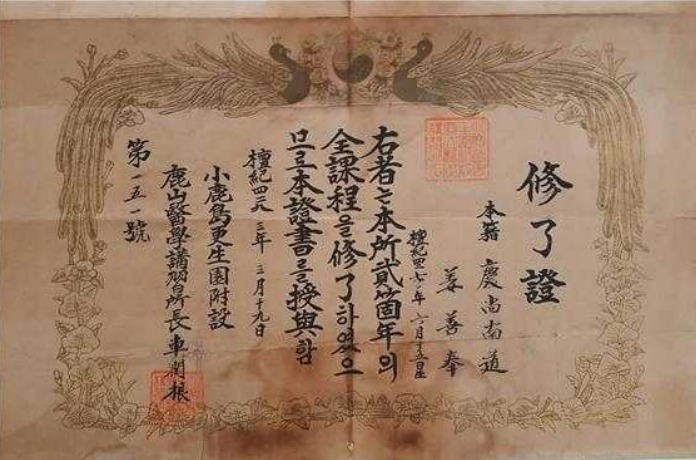 修了證
本籍 慶尚南道
姜善奉
檀紀四二 年 六月十五日生
右者는本所貳箇年의
全課程을修了하였으
므로本證書를授與함
檀紀四二八三年 三月十九日
小鹿島更生園附設
鹿山醫學講習所長 車潤根
第一五一號